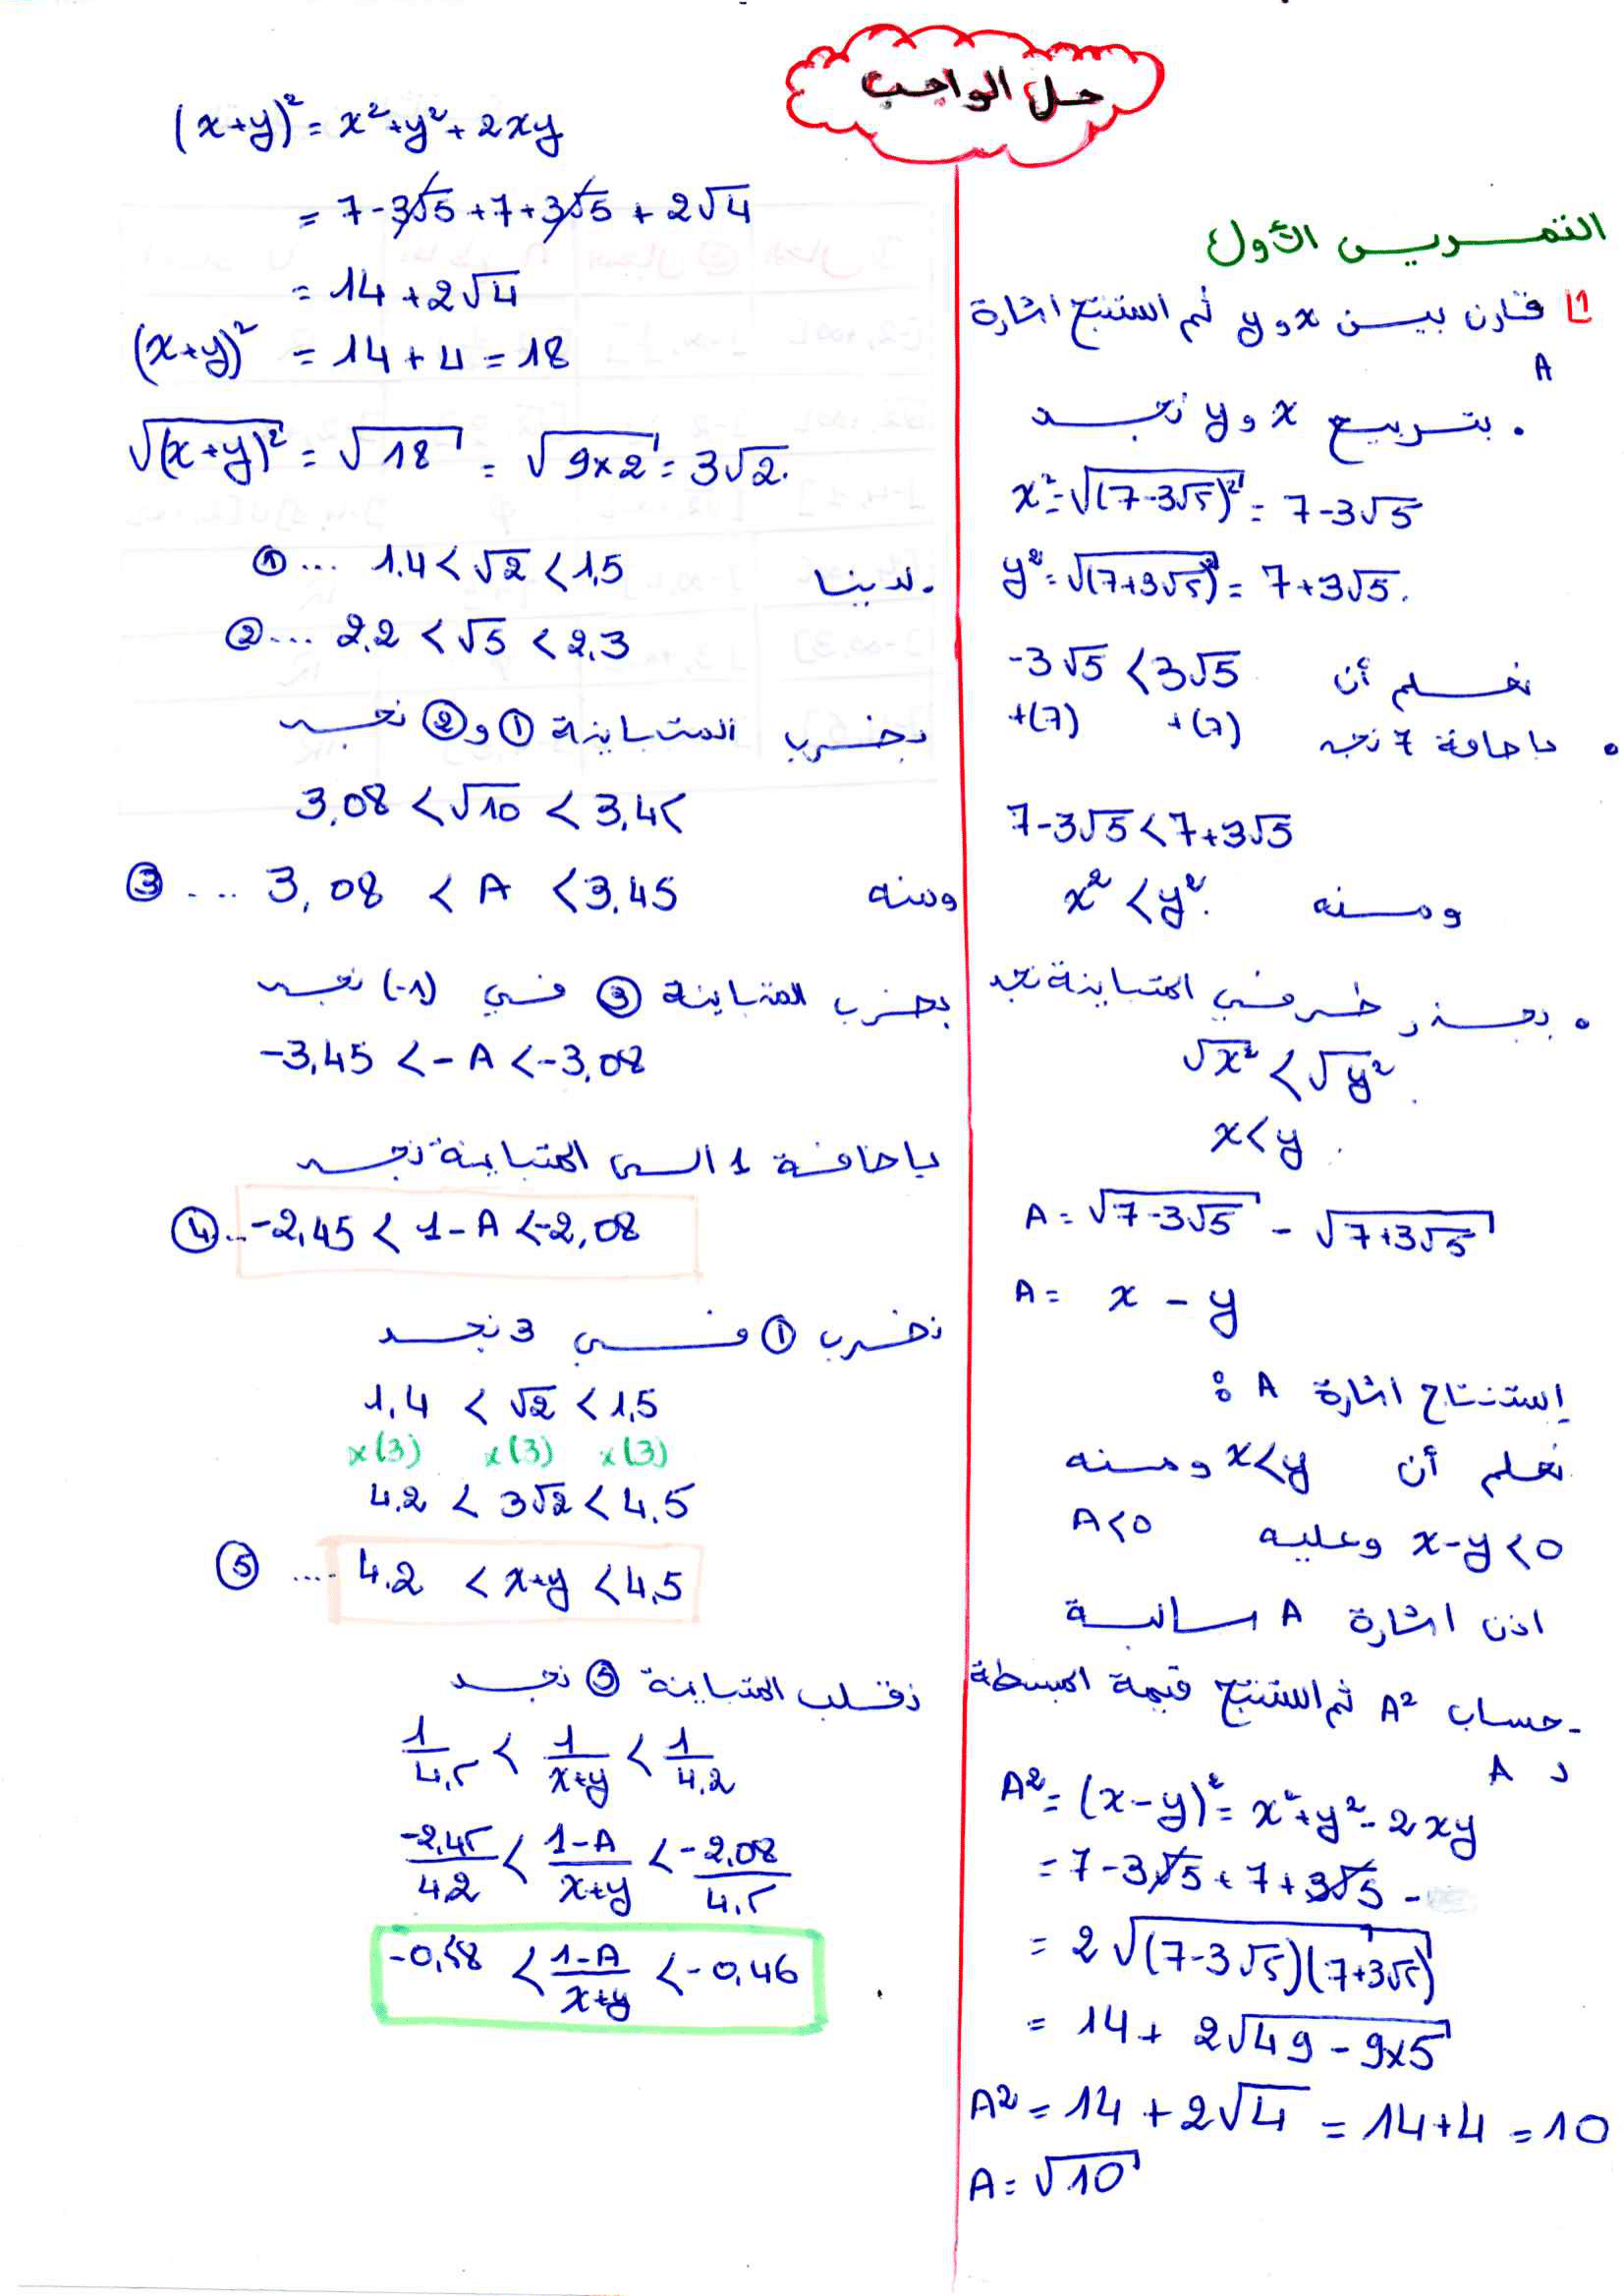 حل الواجب
التمرين الأول
1) قارن بين x و y ثم استنتج اشارة
A
• بتربيع x و y نجد
x²=√(7-3√5)² = 7-3√5
y²=√(7+3√5)² = 7+3√5.
نعلم أن -3√5 < 3√5
• باضافة 7 نجد +(7) +(7)
7-3√5 < 7+3√5
ومنه x² < y².
• بجذر طرفي المتباينة نجد
√x² < √y².
x < y.
A = √7-3√5 - √7+3√5
A = x - y
إستنتاج اشارة A :
نعلم أن x<y ومنه
x-y<0 وعليه A<0
اذن اشارة A سالبة
- حساب A² ثم استنتج قيمة المبسطة
لـ A
A² = (x-y)² = x²+y²-2xy
= 7-3√5+7+3√5 -
= 2√(7-3√5)(7+3√5)
= 14+ 2√49-9×5
A² = 14+2√4 = 14+4 = 10
A = √10
(x+y)² = x²+y²+2xy
= 7-3√5+7+3√5+2√4
= 14+2√4
(x+y)² = 14+4 = 18
√(x+y)² = √18 = √9×2 = 3√2.
• لدينا 1.4<√2<1,5 ... ①
2.2<√5<2.3 ... ②
بضرب المتباينة ① و ② نجد
3,08<√10<3,45
ومنه 3,08 < A < 3,45 .... ③
بضرب المتباينة ③ في (-1) نجد
-3,45 < -A < -3,08
باضافة 1 الى المتباينة نجد
-2,45 < 1-A < -2,08 .. ④
نضرب ① في 3 نجد
1,4 < √2 < 1,5
x(3) x(3) x(3)
4.2 < 3√2 < 4.5
4.2 < x+y < 4,5 .... ⑤
نقلب المتباينة ⑤ نجد
1/4,5 < 1/x+y < 1/4.2
-2,45/4.2 < 1-A/x+y < -2,08/4,5
-0,58 < 1-A/x+y < -0,46